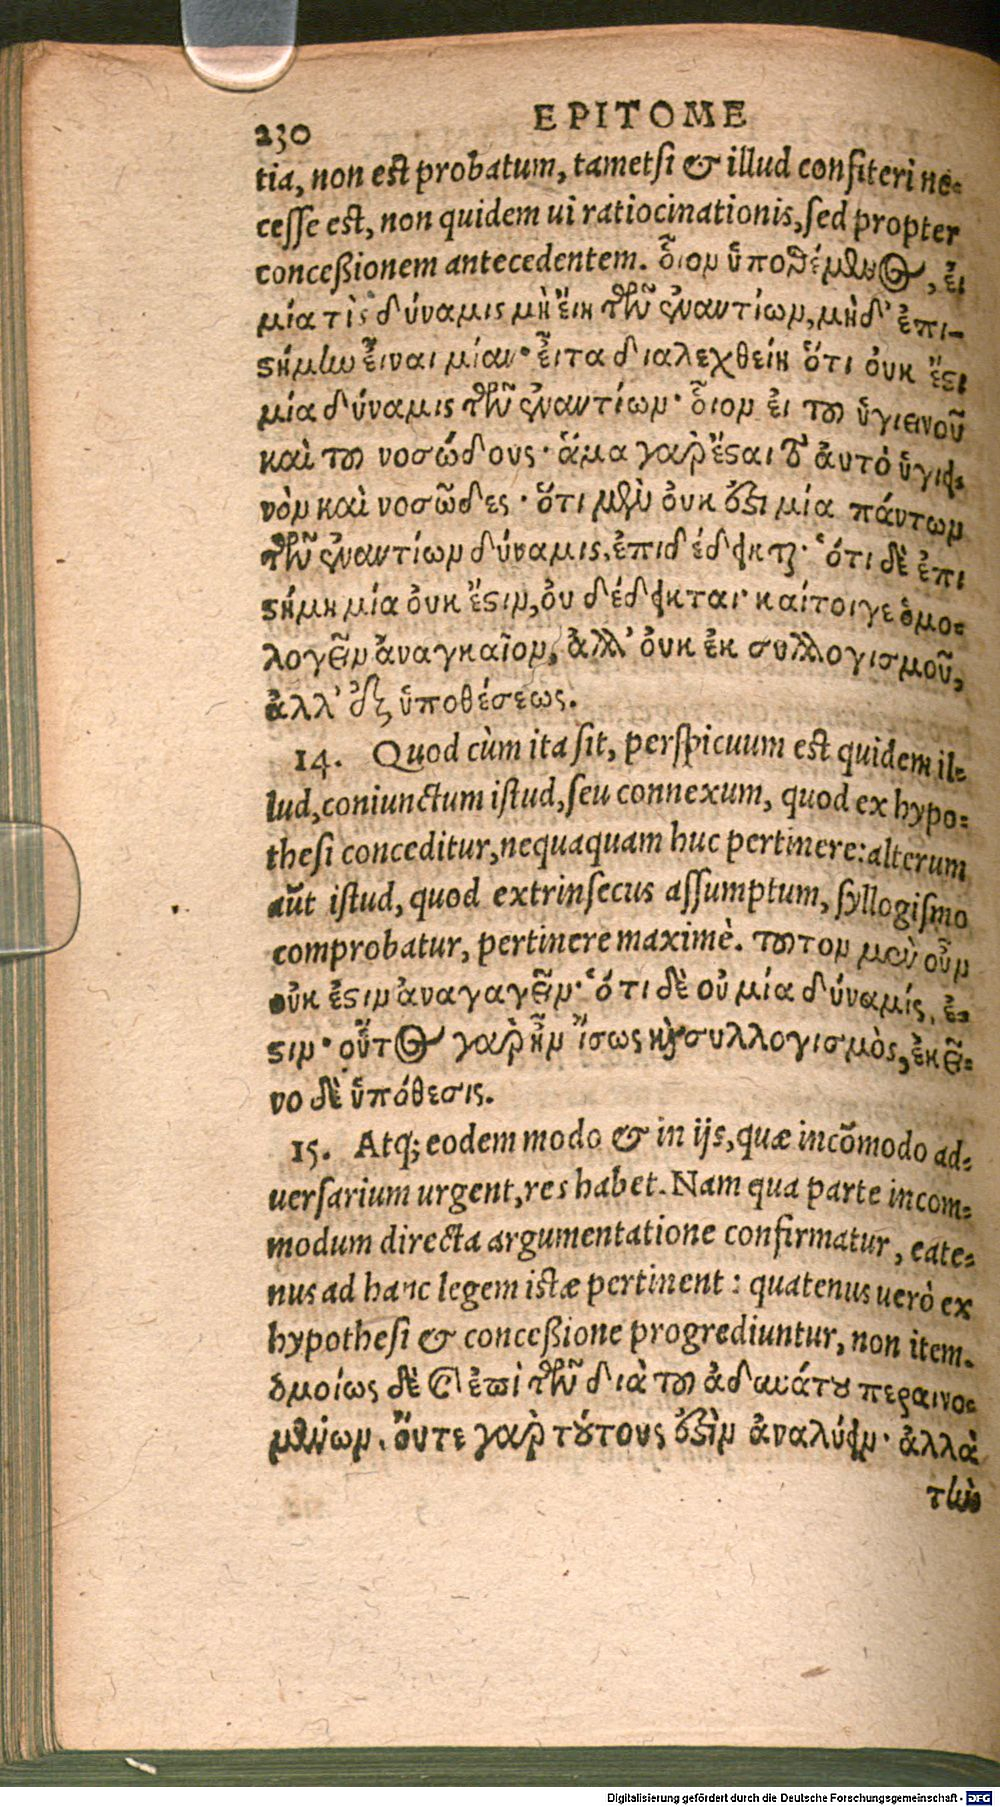 230 EPITOME
tia, non est probatum, tametsi & illud confiteri ne-
cesse est, non quidem ui ratiocinationis, sed propter
conceßionem antecedentem. οἷον ὑποθέμενος, εἰ
μία τὶς δύναμις μὴ εἴη τῶν ἐναντίων, μηδ' ἐπι-
στήμην εἶναι μίαν· εἶτα διαλεχθείη ὅτι οὐκ ἔστι
μία δύναμις τῶν ἐναντίων· οἷον εἰ τοῦ ὑγιεινοῦ
καὶ τοῦ νοσώδους· ἅμα γὰρ ἔσται τὸ αὐτὸ ὑγιει-
νὸν καὶ νοσῶδες· ὅτι μὲν οὐκ ἔστι μία πάντων
τῶν ἐναντίων δύναμις, ἐπιδέδεικται· ὅτι δὲ ἐπι
στήμη μία οὐκ ἔστιν, οὐ δέδεικται· καίτοιγε ὁμο-
λογεῖν ἀναγκαῖον, ἀλλ' οὐκ ἐκ συλλογισμοῦ,
ἀλλ' ἐξ ὑποθέσεως.
14. Quod cùm ita sit, perspicuum est quidem il-
lud, coniunctum istud, seu connexum, quod ex hypo-
thesi conceditur, nequaquam huc pertinere: alterum
aūt istud, quod extrinsecus assumptum, syllogismo
comprobatur, pertinere maximè. τοῦτον μὲν οὖν
οὐκ ἔστιν ἀναγαγεῖν· ὅτι δὲ οὐ μία δύναμίς, ἔ-
στιν· οὗτος γὰρ ἦν ἴσως καὶ συλλογισμὸς, ἐκεῖ-
νο δὲ ὑπόθεσις.
15. Atq; eodem modo & in ijs, quæ incōmodo ad-
uersarium urgent, res habet. Nam qua parte incom-
modum directa argumentatione confirmatur, eate-
nus ad hanc legem istæ pertinent: quatenus uerò ex
hypothesi & conceßione progrediuntur, non item.
ὁμοίως δὲ καὶ ἐπὶ τῶν διὰ τοῦ ἀδυνάτου περαινο-
μένων. οὔτε γὰρ τούτους ἔστιν ἀναλύειν· ἀλλὰ
τὴν
Digitalisierung gefördert durch die Deutsche Forschungsgemeinschaft - DFG